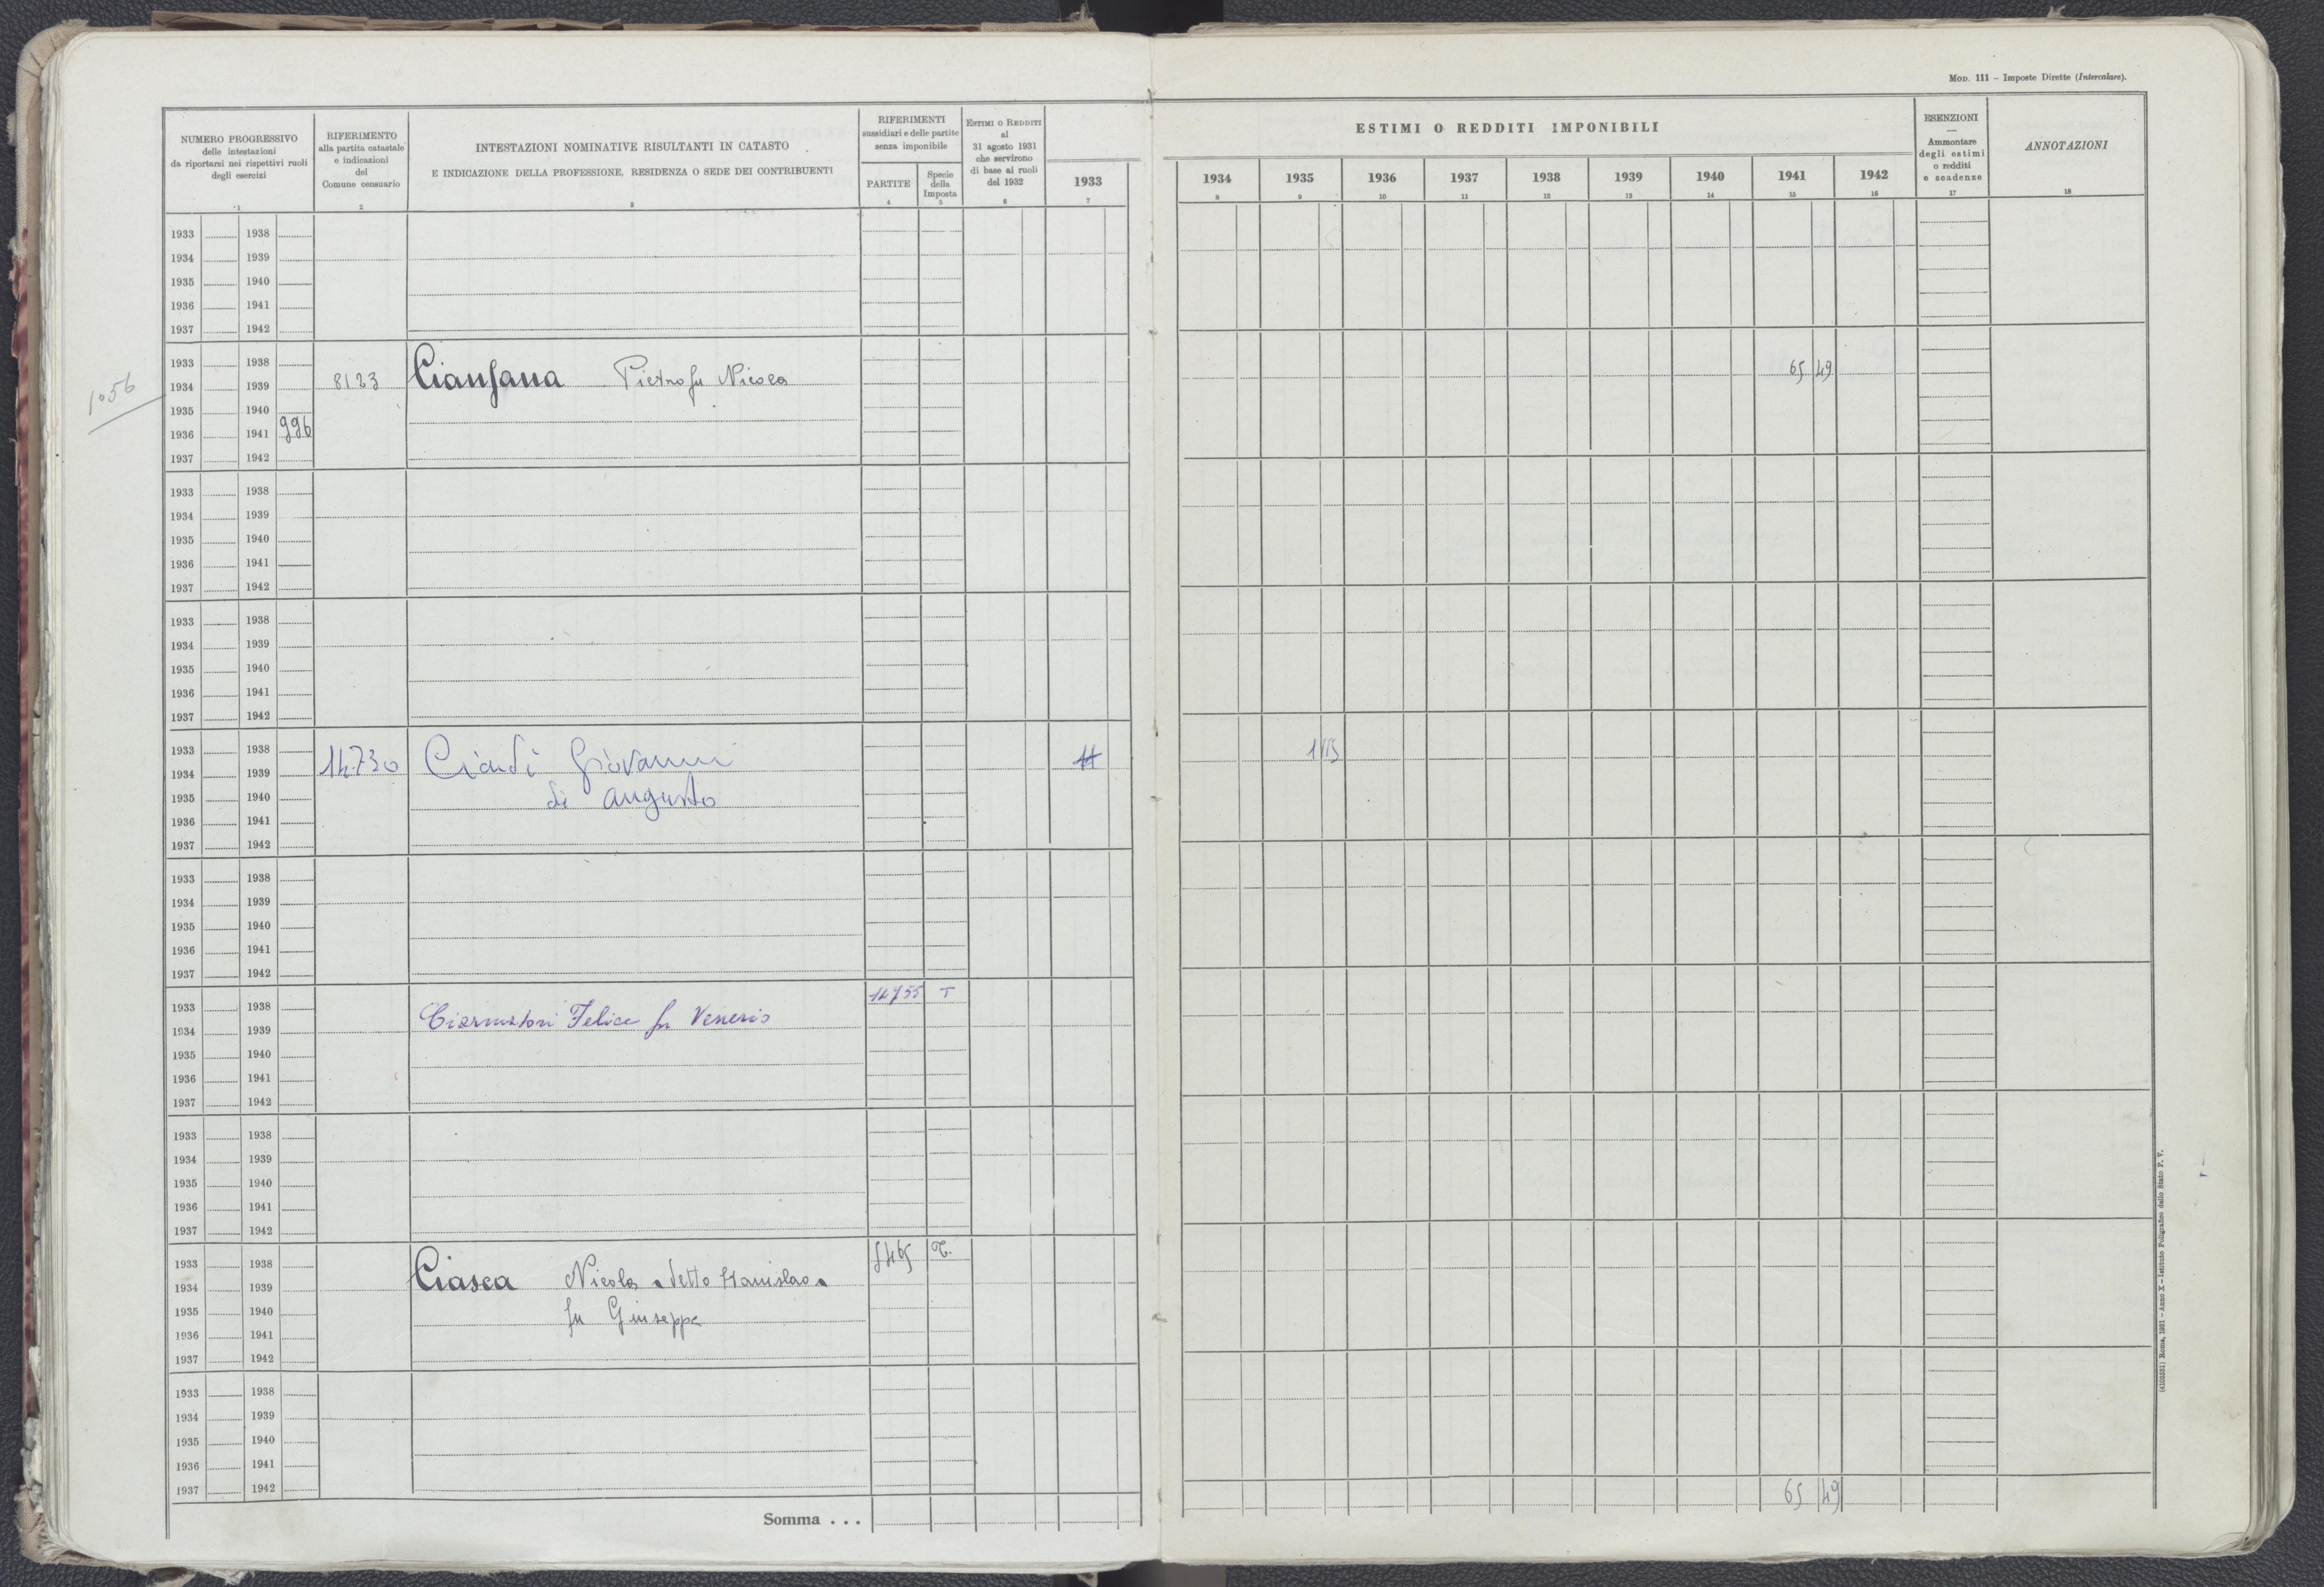 MOD. 111 – Imposte Dirette (Intercalare).
NUMERO PROGRESSIVO
delle intestazioni
da riportarsi nei rispettivi ruoli
degli esercizi
1
RIFERIMENTO
alla partita catastale
e indicazioni
del
Comune censuario
2
INTESTAZIONI NOMINATIVE RISULTANTI IN CATASTO
E INDICAZIONE DELLA PROFESSIONE, RESIDENZA O SEDE DEI CONTRIBUENTI
3
RIFERIMENTI
sussidiari e delle partite
senza imponibile
PARTITE
4
Specie
della
Imposta
5
ESTIMI O REDDITI
al
31 agosto 1931
che servirono
di base ai ruoli
del 1932
6
1933
7
ESTIMI O REDDITI IMPONIBILI
1934 1935 1936 1937 1938 1939 1940 1941 1942
8 9 10 11 12 13 14 15 16
ESENZIONI
—
Ammontare
degli estimi
o redditi
e scadenze
17
ANNOTAZIONI
18
1933 1938
1934 1939
1935 1940
1936 1941
1937 1942
1056
1933 1938
1934 1939 8123 Cianfana Pietro fu Nicola 65 49
1935 1940
1936 1941 996
1937 1942
1933 1938
1934 1939
1935 1940
1936 1941
1937 1942
1933 1938
1934 1939
1935 1940
1936 1941
1937 1942
1933 1938
1934 1939 14730 Ciardi Giovanni
1935 1940 di Augusto
1936 1941
1937 1942
1933 1938
1934 1939
1935 1940
1936 1941
1937 1942
1933 1938 14755 T
1934 1939 Felice fu Venerio
1935 1940
1936 1941
1937 1942
1933 1938
1934 1939
1935 1940
1936 1941
1937 1942
1933 1938 T.
1934 1939 Ciasca Nicola "detto Stanislao"
1935 1940 fu Giuseppe
1936 1941
1937 1942
1933 1938
1934 1939
1935 1940
1936 1941
1937 1942
65 49
Somma . . .
(4103531) Roma, 1931 – Anno X – Istituto Poligrafico dello Stato P. V.